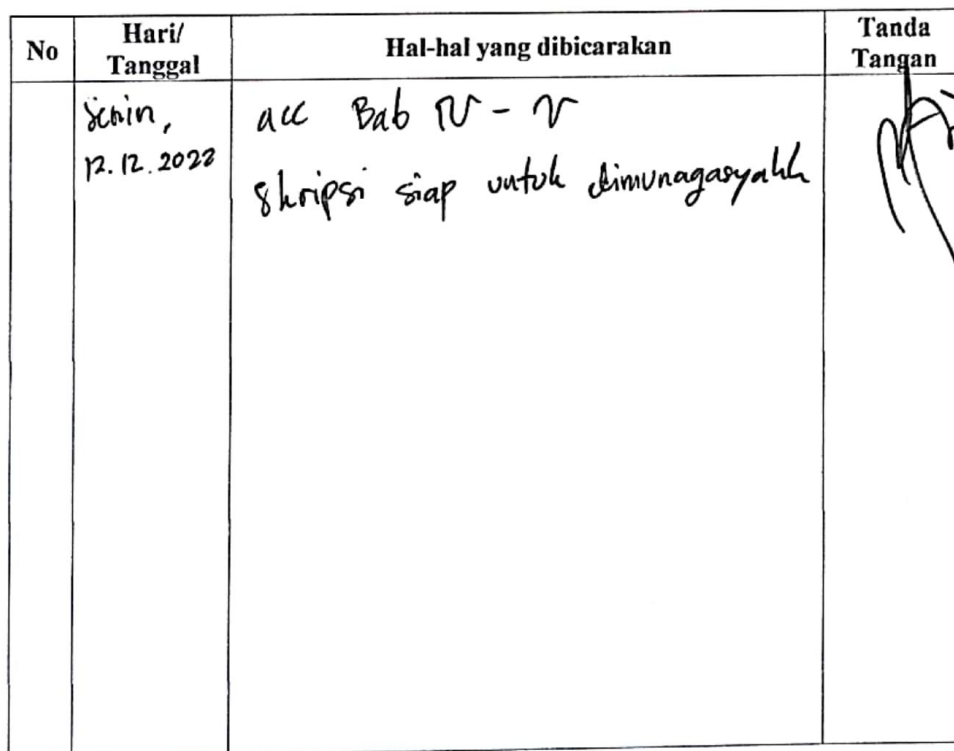 No
Hari/
Tanggal
Hal-hal yang dibicarakan
Tanda
Tangan
Senin,
12.12.2022
acc Bab IV - V
Skripsi siap untuk dimunaqasyahk